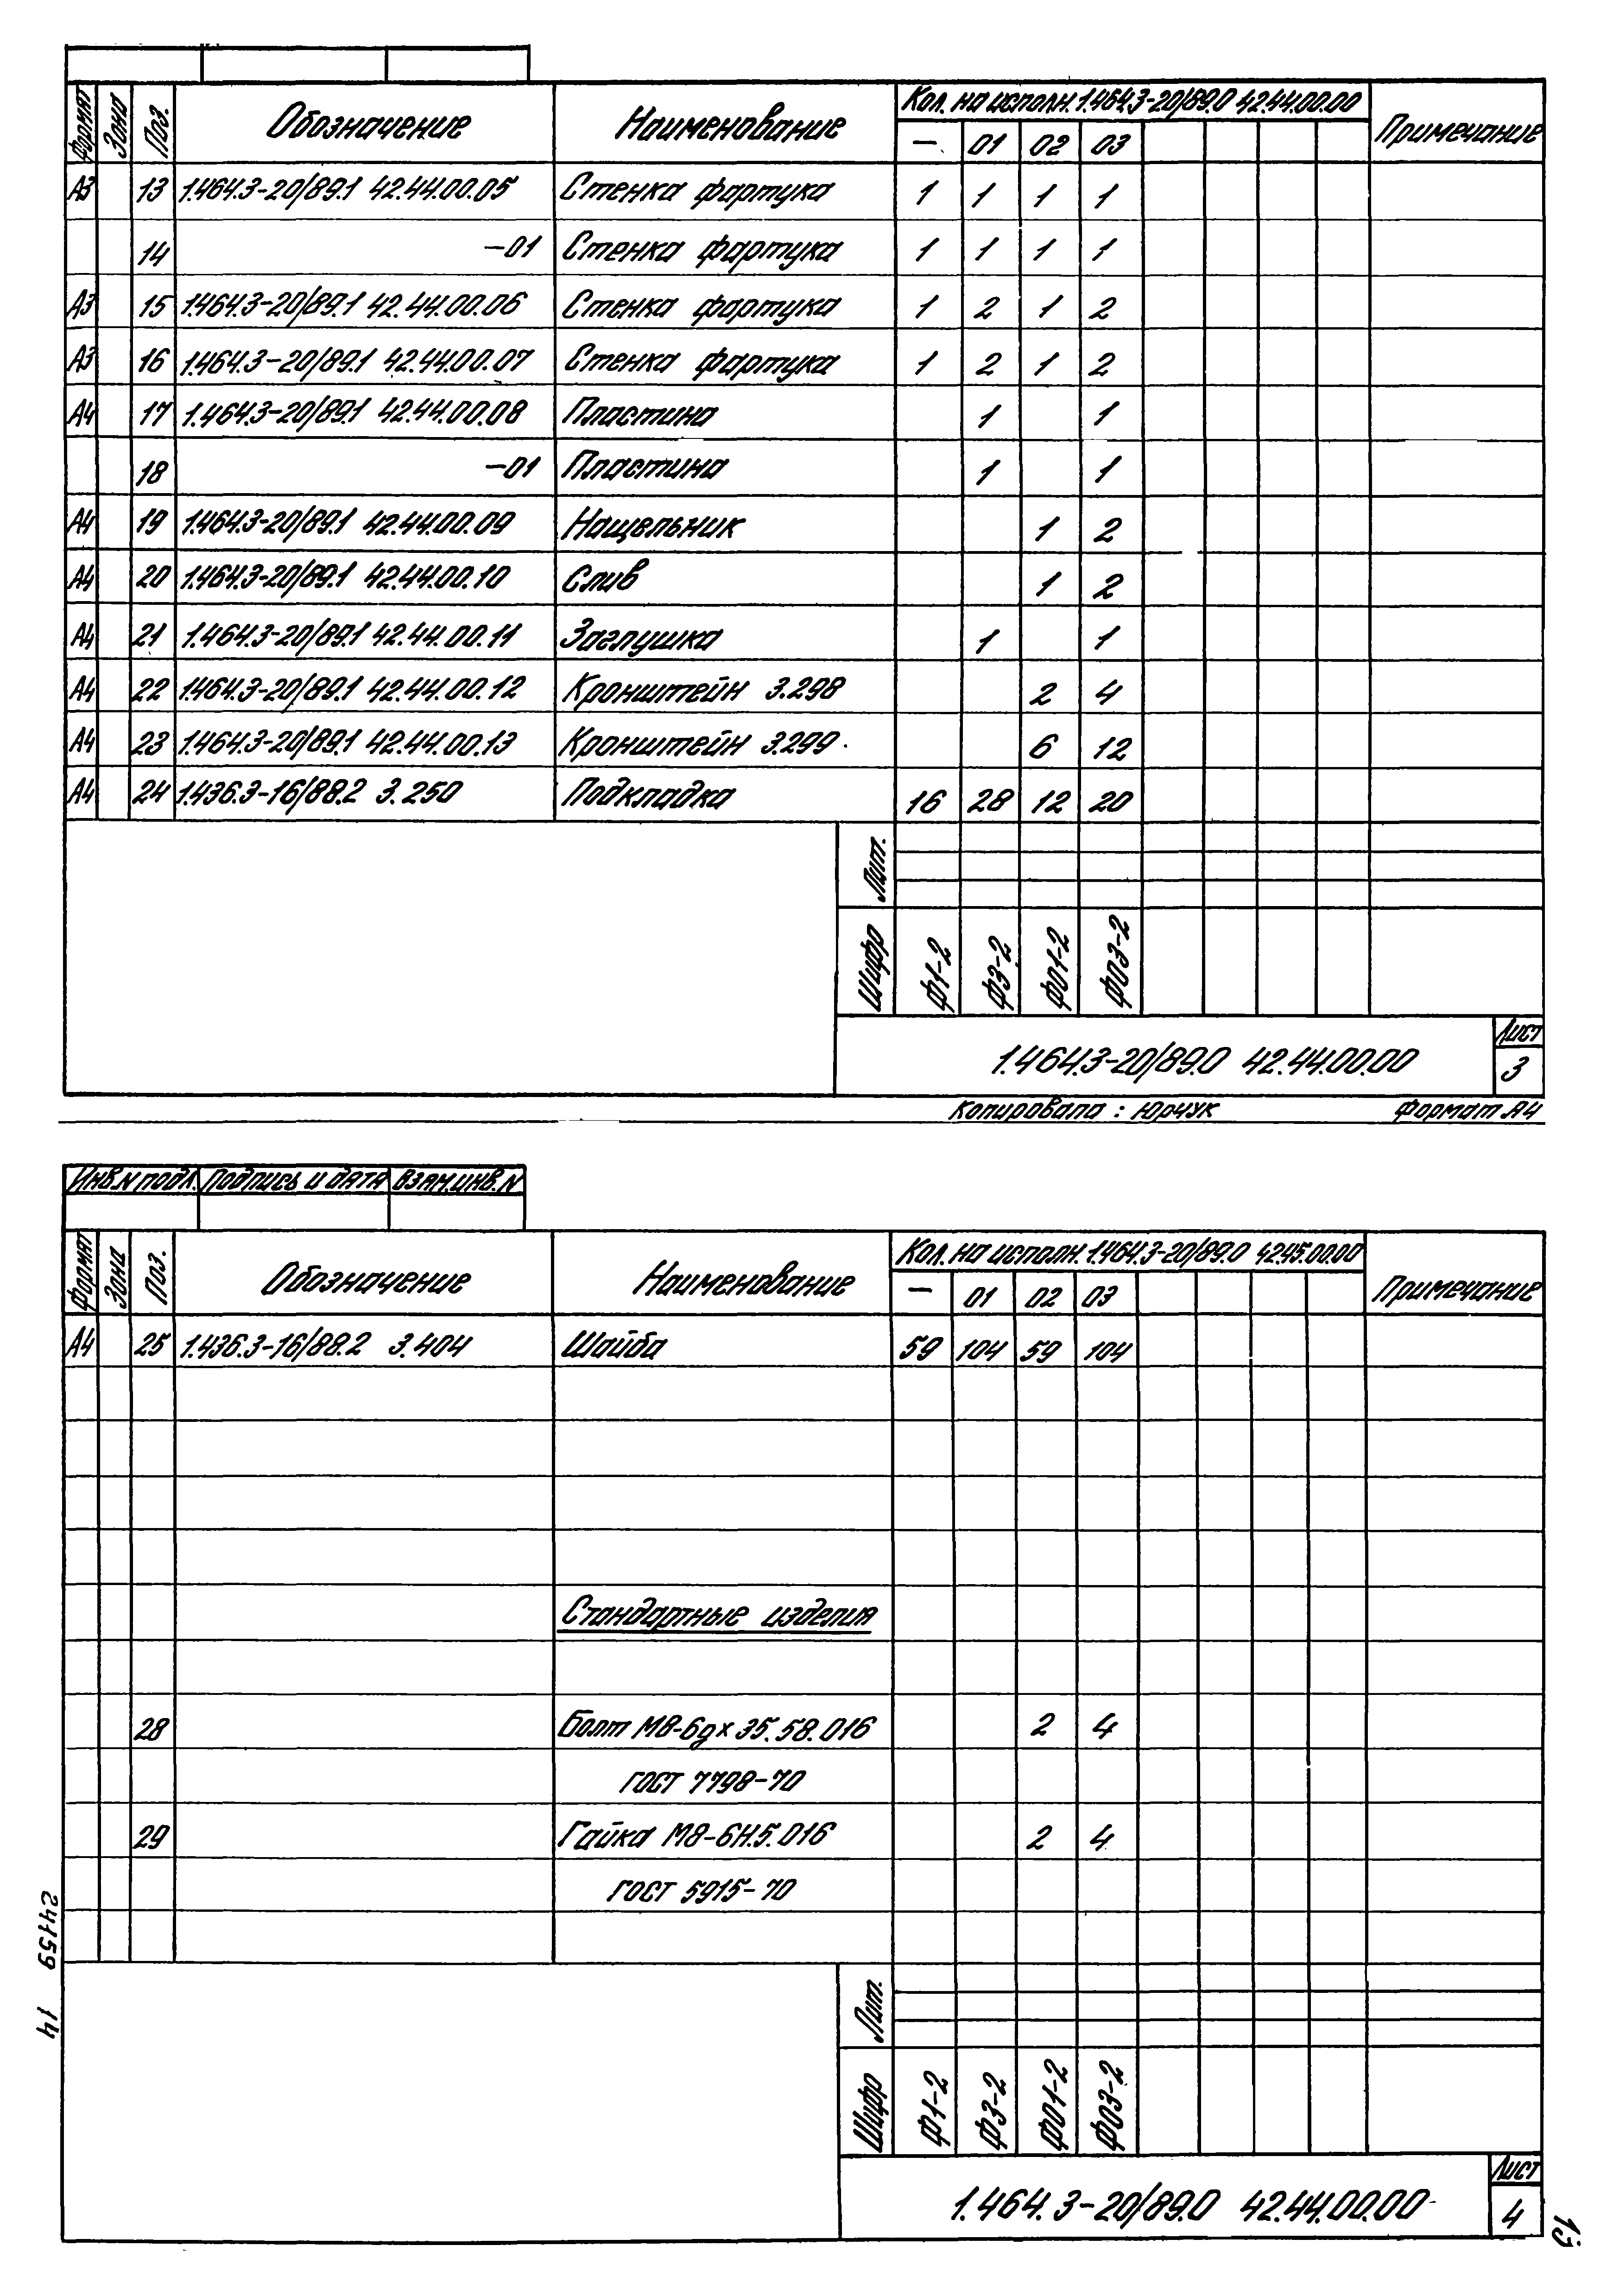 Формат Зона Поз. Обозначение Наименование Кол. на исполн. 1.464.3-20/89.0 42.44.00.00 Примечание
— 01 02 03
А3 13 1.464.3-20/89.1 42.44.00.05 Стенка фартука 1 1 1 1
14 -01 Стенка фартука 1 1 1 1
А3 15 1.464.3-20/89.1 42.44.00.06 Стенка фартука 1 2 1 2
А3 16 1.464.3-20/89.1 42.44.00.07 Стенка фартука 1 2 1 2
А4 17 1.464.3-20/89.1 42.44.00.08 Пластина 1 1
18 -01 Пластина 1 1
А4 19 1.464.3-20/89.1 42.44.00.09 Нащельник 1 2
А4 20 1.464.3-20/89.1 42.44.00.10 Слив 1 2
А4 21 1.464.3-20/89.1 42.44.00.11 Заглушка 1 1
А4 22 1.464.3-20/89.1 42.44.00.12 Кронштейн 3.298 2 4
А4 23 1.464.3-20/89.1 42.44.00.13 Кронштейн 3.299 6 12
А4 24 1.436.3-16/88.2 3.250 Подкладка 16 28 12 20
Лит.
Шифр Ф1-2 Ф3-2 Ф01-2 Ф03-2
1.464.3-20/89.0 42.44.00.00
Лист
3
Копировала : Юрчук Формат А4
Инв.N подл. Подпись и дата Взам.инв.N
Формат Зона Поз. Обозначение Наименование Кол. на исполн. 1.464.3-20/89.0 42.45.00.00 Примечание
— 01 02 03
А4 25 1.436.3-16/88.2 3.404 Шайба 59 104 59 104
Стандартные изделия
28 Болт М8-6gх35.58.016 2 4
ГОСТ 7798-70
29 Гайка М8-6Н.5.016 2 4
ГОСТ 5915-70
Лит.
Шифр Ф1-2 Ф3-2 Ф01-2 Ф03-2
1.464.3-20/89.0 42.44.00.00
Лист
4
24159 14